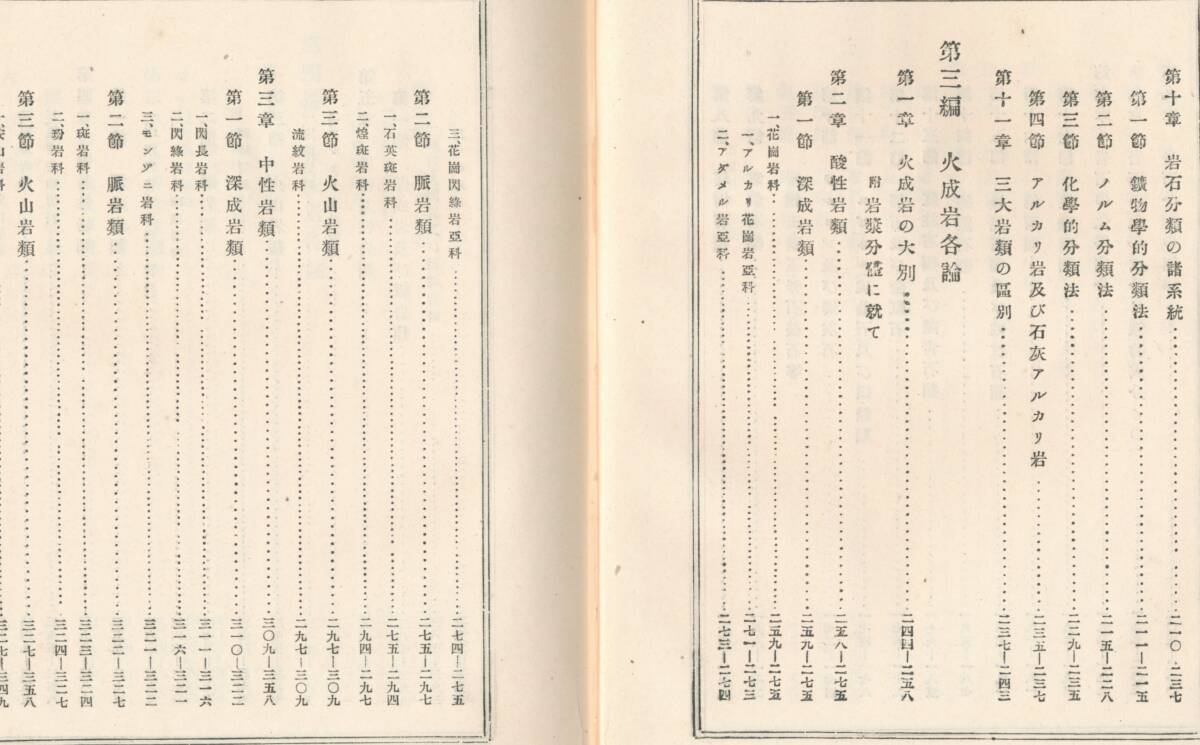 第十章　岩石分類の諸系統……二一〇―二三七
第一節　鑛物學的分類法……二一一―二一五
第二節　ノルム分類法……二一五―二二八
第三節　化學的分類法……二二九―二三五
第四節　アルカリ岩及び石灰アルカリ岩……二三五―二三七
第十一章　三大岩類の區別……二三七―二四三
第三編　火成岩各論
第一章　火成岩の大別……二四四―二五八
附　岩漿分體に就て
第二章　酸性岩類……二五八―二七五
第一節　深成岩類……二五九―二七五
一、花崗岩科……二五九―二七五
一、アルカリ花崗岩亞科……二七一―二七三
二、アダメル岩亞科……二七三―二七四
三、花崗閃綠岩亞科……二七四―二七五
第二節　脈岩類……二七五―二九七
一、石英斑岩科……二七五―二九四
二、煌斑岩科……二九四―二九七
第三節　火山岩類……二九七―三〇九
流紋岩科……二九七―三〇九
第三章　中性岩類……三〇九―三五八
第一節　深成岩類……三一〇―三二二
一、閃長岩科……三一一―三一六
二、閃綠岩科……三一六―三二一
三、モンゾニ岩科……三二一―三二二
第二節　脈岩類……三二二―三二七
一、斑岩科……三二三―三二四
二、玢岩科……三二四―三二七
第三節　火山岩類……三二七―三五八
山岩科……三二七―三四九